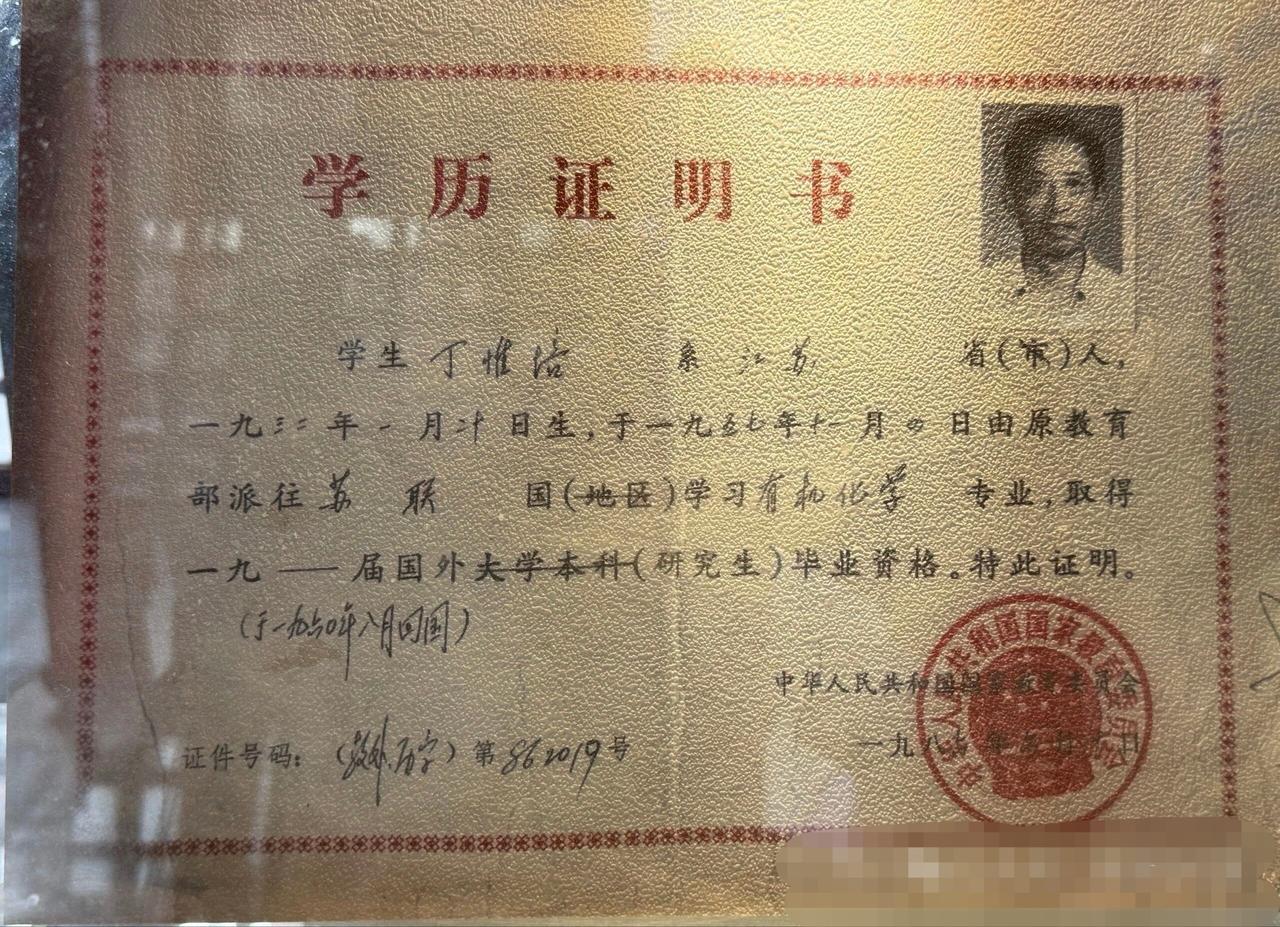 学历证明书
学生 丁惟培 系 江苏 省(市)人,
一九三二年一月二十日生,于一九五七年十一月四日由原教育
部派往苏联国(地区)学习有机化学专业,取得
一九——届国外大学本科(研究生)毕业资格。特此证明。
(于一九六〇年八月回国)
中华人民共和国国家教育委员会
一九八七年 月 日
证件号码:(教外历字)第862019号